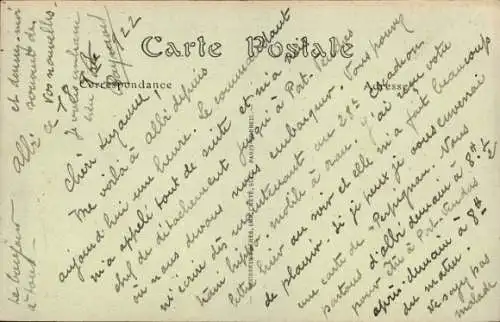 Carte Postale
Correspondance
Adresse
Albi, ce 7
22
Chère Suzanne,
Me voilà à Albi depuis
aujourd'hui une heure. Le commandant
m'a appelé tout de suite et m'a
chef de détachement jusqu'à Port-Vendres
où nous devons nous embarquer. Vous pouvez
m'écrire dès maintenant au 28e Escadron
train hippo mobile à Oran. J'ai reçu votre
lettre hier au soir et elle m'a fait beaucoup
de plaisir. Si je peux je vous enverrai
une carte de "Perpignan". Nous
partons d'Albi demain à 8h 1/2
pour être à Port-Vendres
après-demain à 8h
du matin.
Ne soyez pas
malade
et donnez-moi
souvent de
vos nouvelles.
Le bonjour
à tous.